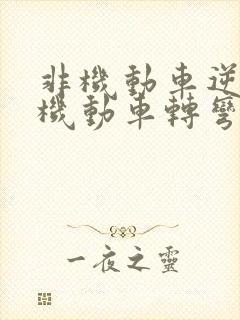 非機動車逆
機動車轉彎
一夜之靈